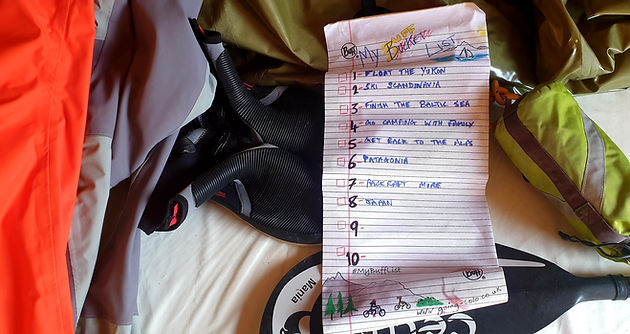 Buff
My BUFF Bucket List
1- FLOAT THE YUKON
2- SKI SCANDINAVIA
3- FINISH THE BALTIC SEA
4- GO CAMPING WITH FAMILY
5- GET BACK TO THE ALPS
6- PATAGONIA
7- PACKRAFT MORE
8- JAPAN
9-
10-
#MyBuffList
Buff
www.going-solo.co.uk
Mania